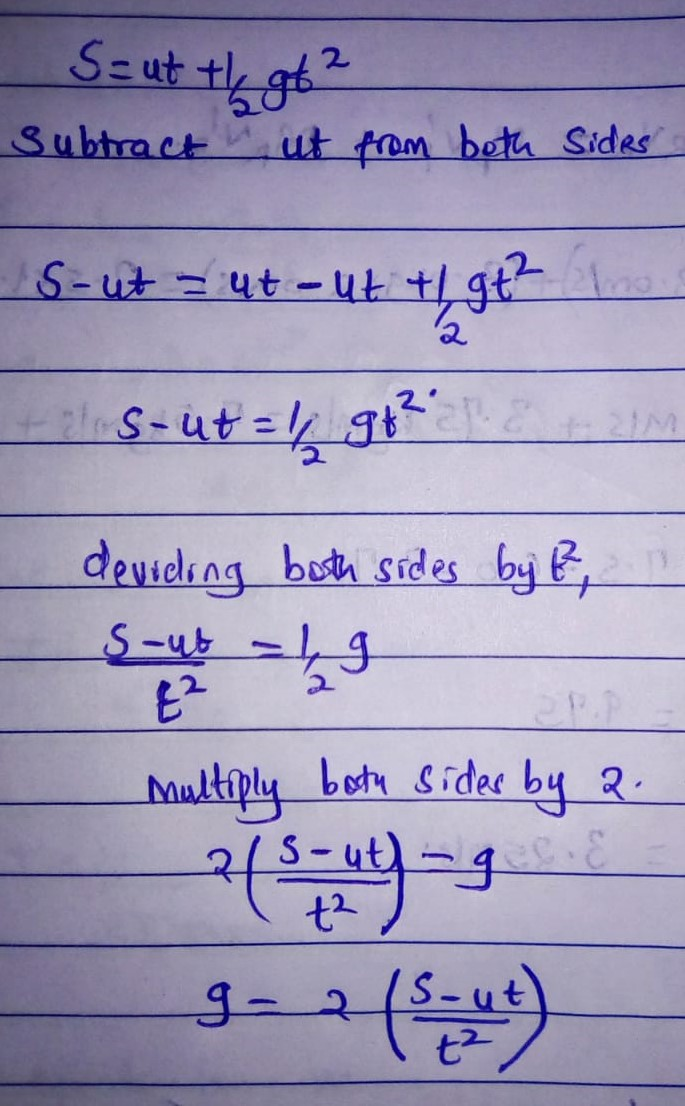 S=ut +1/2 gt²
Subtract ut from both Sides
S-ut = ut - ut +1/2 gt²
S-ut = 1/2 gt²
deviding both sides by t²,
S-ut/t² = 1/2 g
Multiply both sides by 2.
2(S-ut/t²) = g
g = 2 (S-ut/t²)